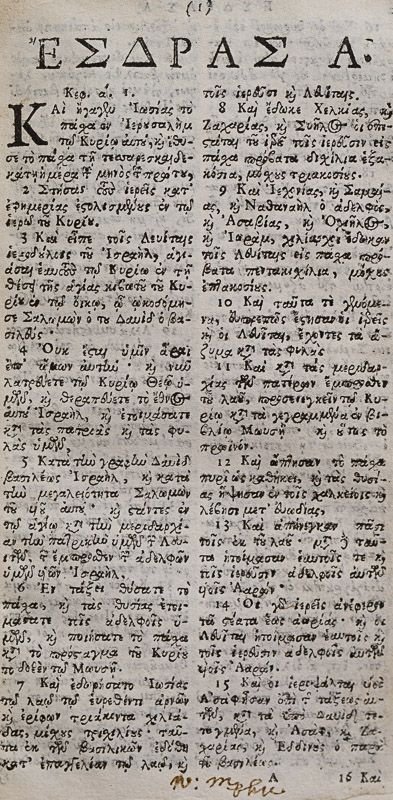 (1)
ἜΣΔΡΑΣ Α.
Κεφ. α. 1.
ΚΑὶ ἤγαγεν Ἰωσίας τὸ
πάσχα ἐν Ἱερουσαλὴμ
τῷ Κυρίῳ αὐτοῦ, καὶ ἔθυ-
σε τὸ πάσχα τῇ τεσσαρεσκαιδε-
κάτῃ ἡμέρᾳ τοῦ μηνὸς τοῦ πρώτου,
2 Στήσας τοὺς ἱερεῖς κατ'
ἐφημερίας ἐστολισμένους ἐν τῷ
ἱερῷ τοῦ Κυρίου.
3 Καὶ εἶπε τοῖς Λευίταις
ἱεροδούλοις τοῦ Ἰσραὴλ, ἁγι-
άσαι ἑαυτοὺς τῷ Κυρίῳ ἐν τῇ
θέσει τῆς ἁγίας κιβωτοῦ τοῦ Κυ-
ρίου ἐν τῷ οἴκῳ, ᾧ ᾠκοδόμη-
σε Σαλωμὼν ὁ τοῦ Δαυὶδ ὁ βα-
σιλεύς·
4 Οὐκ ἔσται ὑμῖν ἆραι
ἐπ' ὤμων αὐτήν· καὶ νῦν
λατρεύετε τῷ Κυρίῳ Θεῷ ὑ-
μῶν, καὶ θεραπεύετε τὸ ἔθνος
αὐτοῦ Ἰσραὴλ, καὶ ἑτοιμάσατε
κατὰ τὰς πατριὰς καὶ τὰς φυ-
λὰς ὑμῶν,
5 Κατὰ τὴν γραφὴν Δαυὶδ
βασιλέως Ἰσραὴλ, καὶ κατὰ
τὴν μεγαλειότητα Σαλωμὼν
τοῦ υἱοῦ αὐτοῦ· καὶ στάντες ἐν
τῷ ἁγίῳ κατὰ τὴν μεριδαρχί-
αν τὴν πατρικὴν ὑμῶν τῶν Λευ-
ιτῶν, τῶν ἔμπροσθεν τῶν ἀδελφῶν
ὑμῶν υἱῶν Ἰσραὴλ.
6 Ἐν τάξει θύσατε τὸ
πάσχα, καὶ τὰς θυσίας ἑτοι-
μάσατε τοῖς ἀδελφοῖς ὑ-
μῶν, καὶ ποιήσατε τὸ πάσχα
κατὰ τὸ πρόσταγμα τοῦ Κυρίου
τὸ δοθὲν τῷ Μωυσῇ.
7 Καὶ ἐδωρήσατο Ἰωσίας
τῷ λαῷ τῷ εὑρεθέντι ἀρνῶν
καὶ ἐρίφων τριάκοντα χιλιά-
δας, μόσχους τρισχιλίους· ταῦ-
τα ἐκ τῶν βασιλικῶν ἐδόθη
κατ' ἐπαγγελίαν τῷ λαῷ, καὶ
τοῖς ἱερεῦσι καὶ Λευίταις.
8 Καὶ ἔδωκε Χελκίας, καὶ
Ζαχαρίας, καὶ Συῆλος οἱ ἐπι-
στάται τοῦ ἱεροῦ τοῖς ἱερεῦσιν εἰς
πάσχα πρόβατα δισχίλια ἑξα-
κόσια, μόσχους τριακοσίους.
9 Καὶ Ἰεχονίας, καὶ Σαμαί-
ας, καὶ Ναθαναὴλ ὁ ἀδελφὸς,
καὶ Ἀσαβίας, καὶ Ὀχιῆλος,
καὶ Ἰωρὰμ, χιλίαρχοι ἔδωκαν
τοῖς Λευίταις εἰς πάσχα πρό-
βατα πεντακισχίλια, μόσχους
ἑπτακοσίους.
10 Καὶ ταῦτα τὰ γενόμε-
να, εὐπρεπῶς ἔστησαν οἱ ἱερεῖς
καὶ οἱ Λευῖται, ἔχοντες τὰ ἄ-
ζυμα κατὰ τὰς φυλὰς
11 Καὶ κατὰ τὰς μεριδαρ-
χίας τῶν πατέρων ἔμπροσθεν
τοῦ λαοῦ, προσενεγκεῖν τῷ Κυ-
ρίῳ κατὰ τὰ γεγραμμένα ἐν βι-
βλίῳ Μωυσῆ· καὶ οὕτως τὸ
πρωϊνόν.
12 Καὶ ὤπτησαν τὸ πάσχα
πυρὶ ὡς καθήκει, καὶ τὰς θυσί-
ας ἥψησαν ἐν τοῖς χαλκείοις καὶ
λέβησι μετ' εὐωδίας,
13 Καὶ ἀπήνεγκαν πᾶσι
τοῖς ἐκ τοῦ λαοῦ· μετὰ δὲ ταῦ-
τα ἡτοίμασαν ἑαυτοῖς τε καὶ
τοῖς ἱερεῦσιν ἀδελφοῖς αὐτῶν
υἱοῖς Ἀαρών.
14 Οἱ γὰρ ἱερεῖς ἀνέφερον
τὰ στέατα ἕως ἀωρίας· καὶ οἱ
Λευῖται ἡτοίμασαν ἑαυτοῖς καὶ
τοῖς ἱερεῦσιν ἀδελφοῖς αὐτῶν
υἱοῖς Ἀαρών.
15 Καὶ οἱ ἱεροψάλται υἱοὶ
Ἀσὰφ ἦσαν ἐπὶ τῆς τάξεως αὐ-
τῶν, κατὰ τὰ ὑπὸ Δαυὶδ τε-
ταγμένα, καὶ Ἀσὰφ, καὶ Ζα-
χαρίας, καὶ Ἐδδινοὺς ὁ παρὰ
τοῦ βασιλέως.
A 16 Καὶ